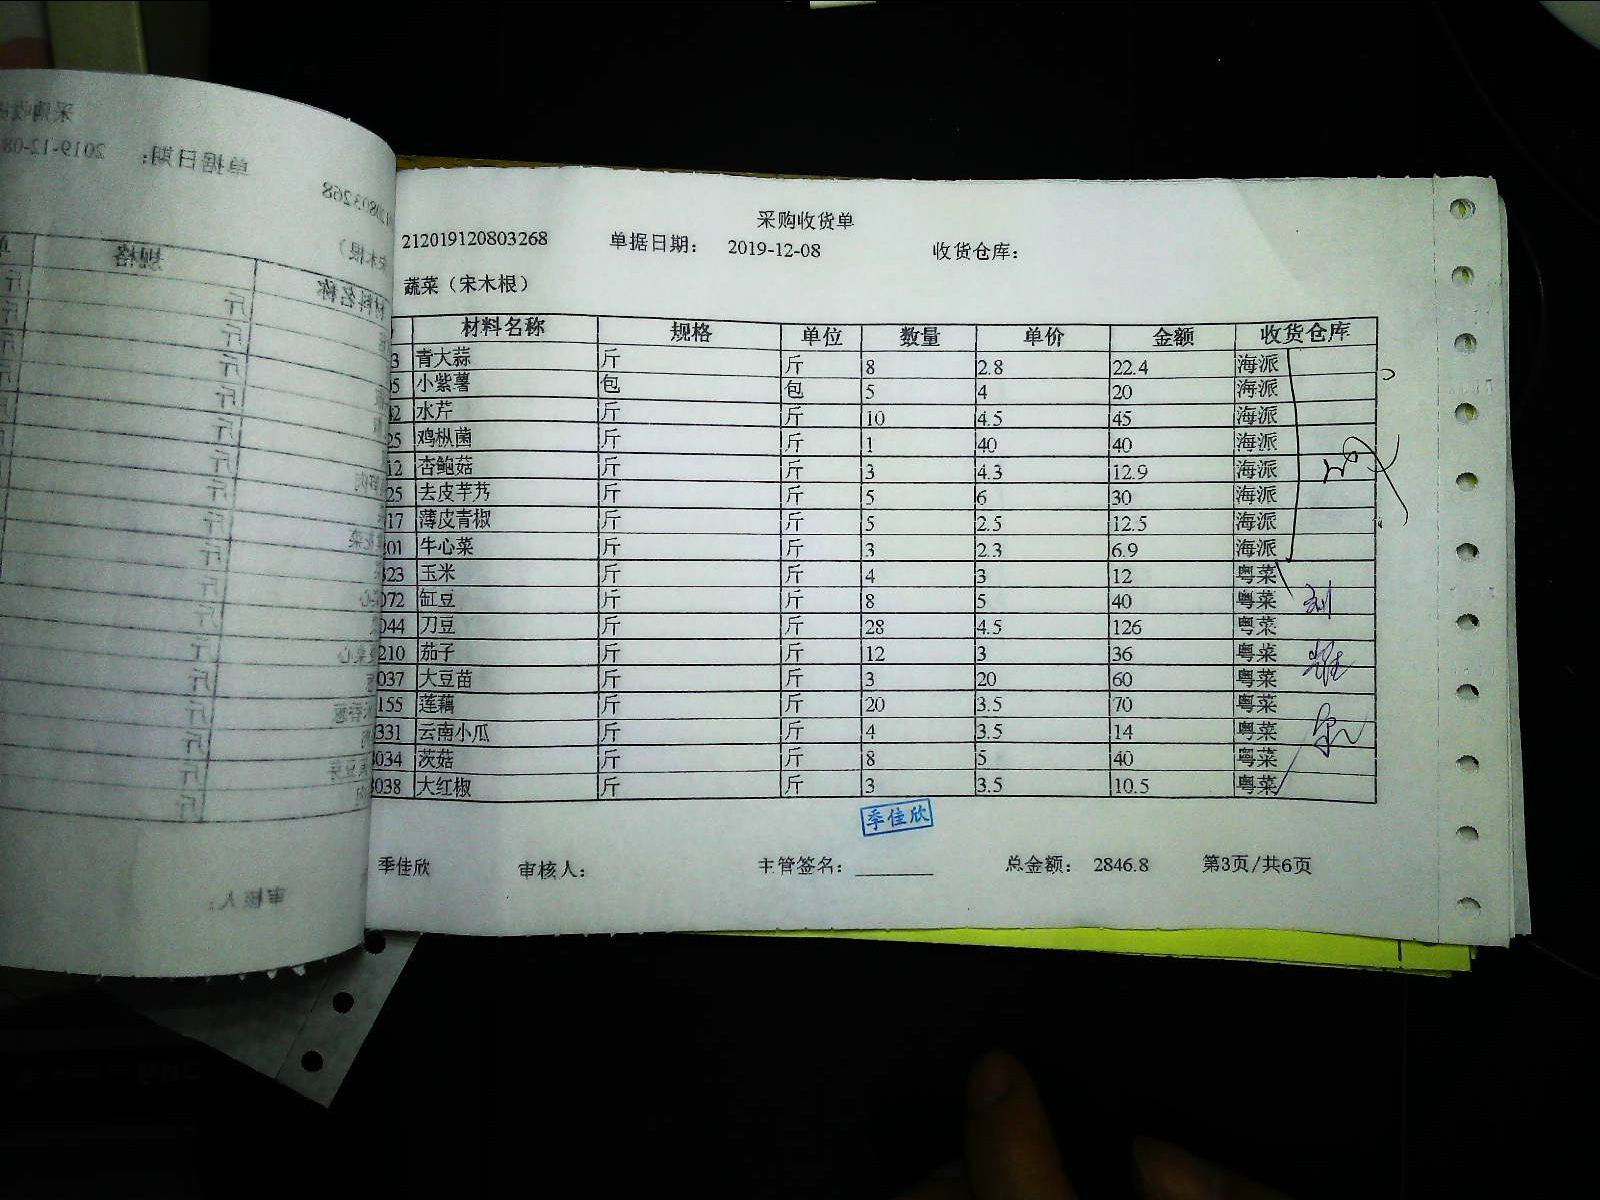 采购收货单
212019120803268 单据日期: 2019-12-08 收货仓库:
蔬菜（宋木根）
材料名称 规格 单位 数量 单价 金额 收货仓库
3 青大蒜 斤 斤 8 2.8 22.4 海派
5 小紫薯 包 包 5 4 20 海派
42 水芹 斤 斤 10 4.5 45 海派
25 鸡枞菌 斤 斤 1 40 40 海派
12 杏鲍菇 斤 斤 3 4.3 12.9 海派
25 去皮芋艿 斤 斤 5 6 30 海派
17 薄皮青椒 斤 斤 5 2.5 12.5 海派
201 牛心菜 斤 斤 3 2.3 6.9 海派
323 玉米 斤 斤 4 3 12 粤菜
072 缸豆 斤 斤 8 5 40 粤菜
044 刀豆 斤 斤 28 4.5 126 粤菜
210 茄子 斤 斤 12 3 36 粤菜
037 大豆苗 斤 斤 3 20 60 粤菜
155 莲藕 斤 斤 20 3.5 70 粤菜
331 云南小瓜 斤 斤 4 3.5 14 粤菜
034 茨菇 斤 斤 8 5 40 粤菜
038 大红椒 斤 斤 3 3.5 10.5 粤菜
季佳欣
季佳欣 审核人: 主管签名: 总金额: 2846.8 第3页/共6页